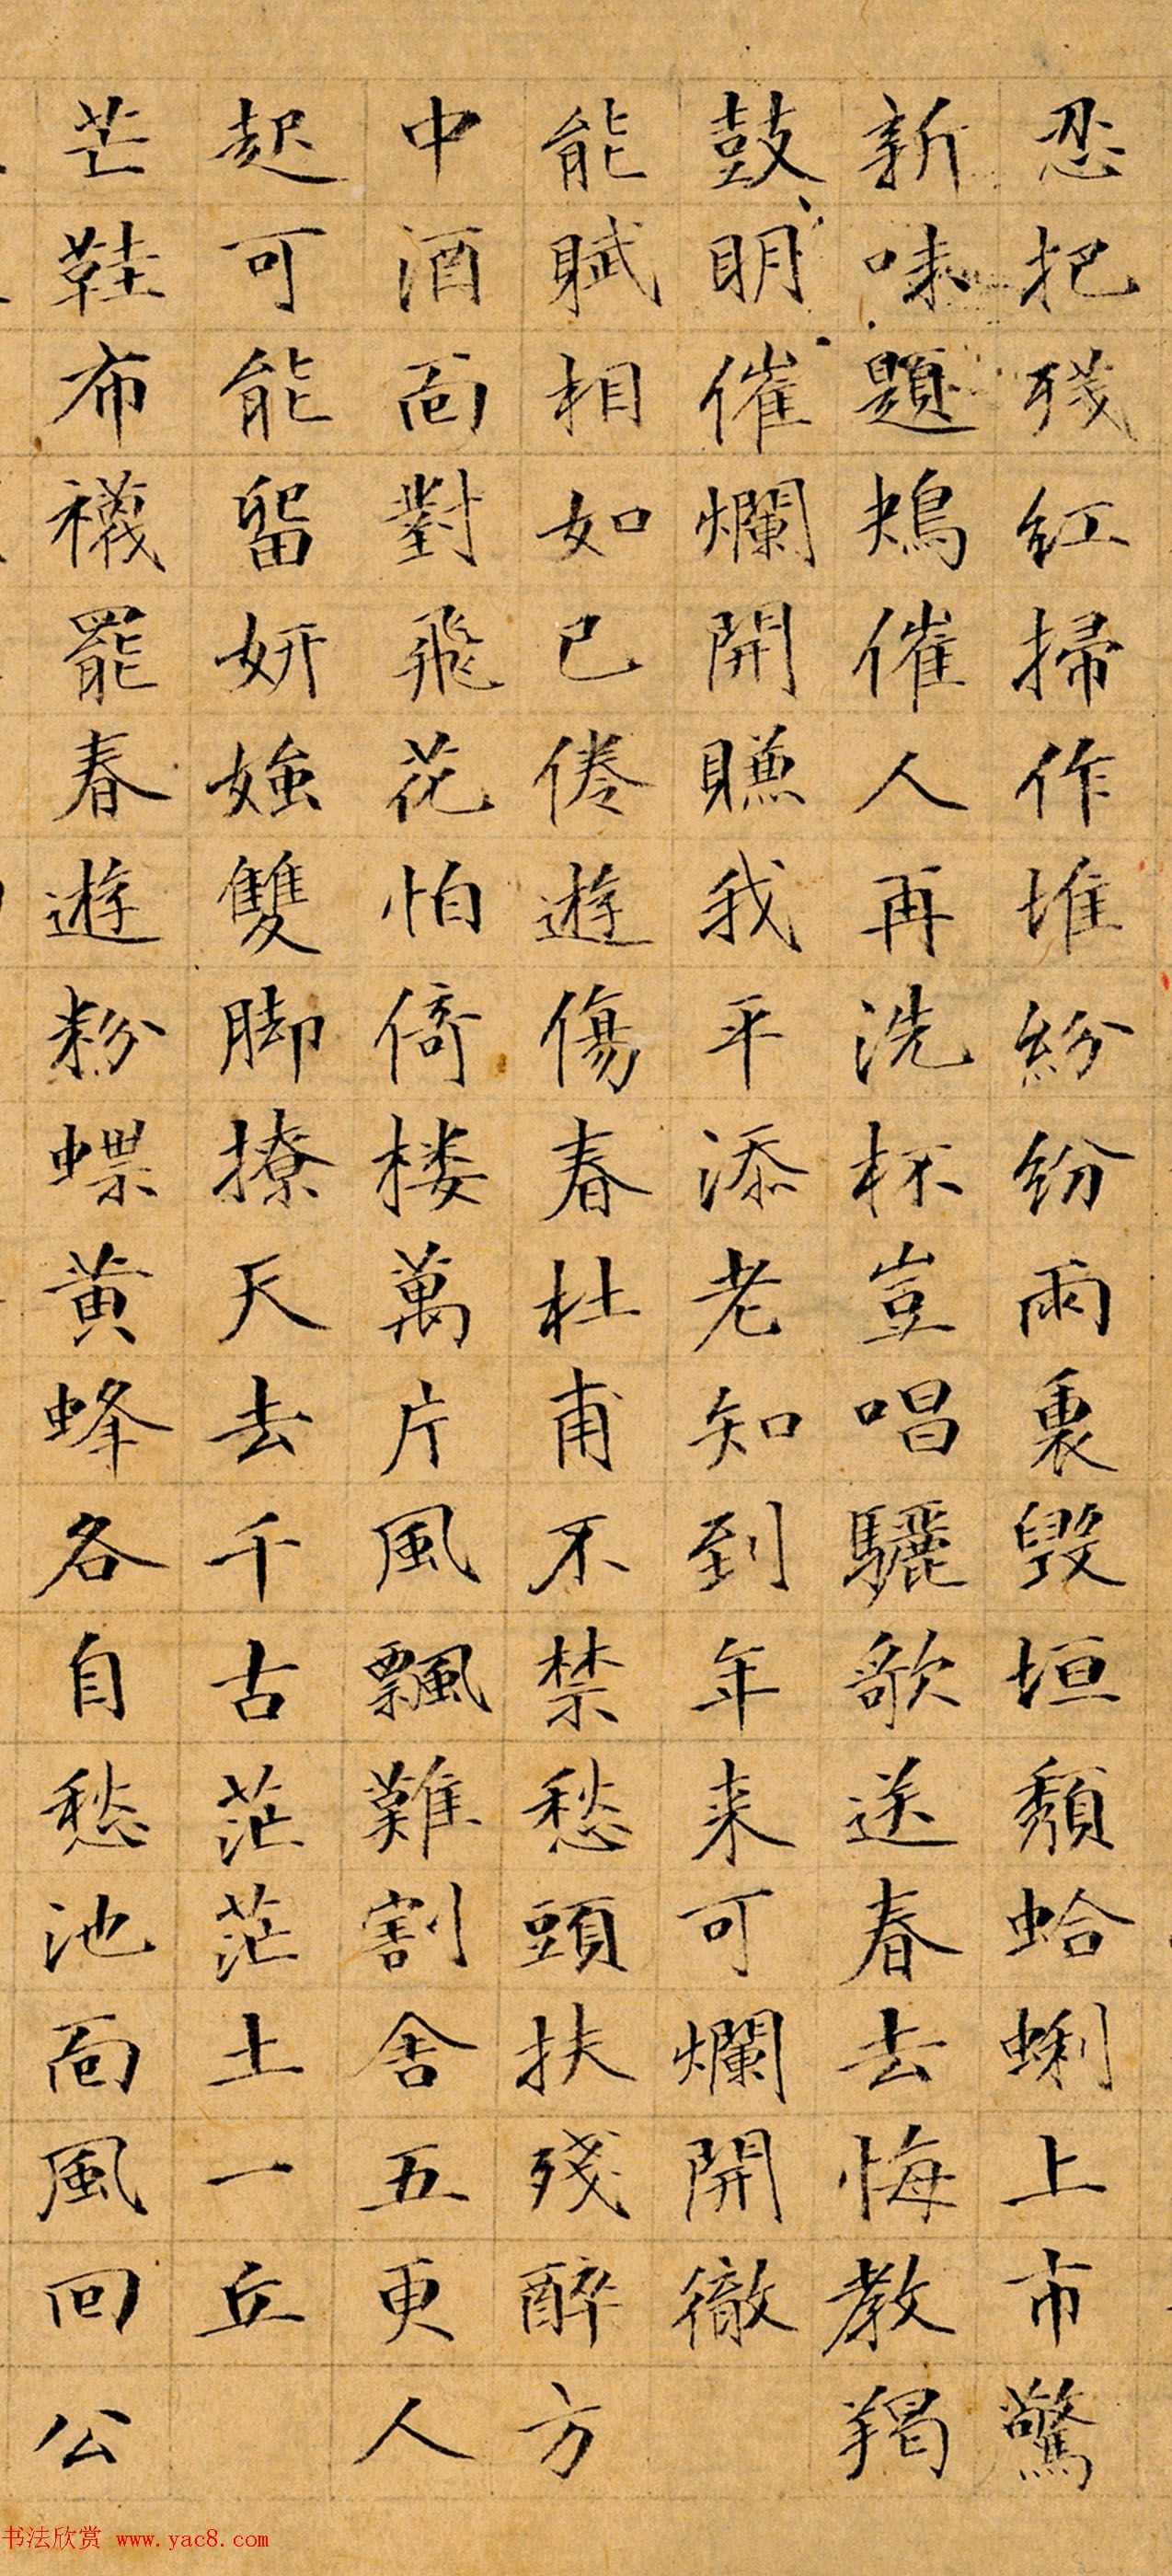 忍把殘紅掃作堆紛紛雨裏毀垣頹蛤蜊上市驚
新味題鴂催人再洗杯豈唱驪歌送春去悔教羯
鼓明催爛開賺我平添老知到年来可爛開徹
能賦相如已倦遊傷春杜甫不禁愁頭扶殘醉方
中酒面對飛花怕倚楼萬片風飄難割舍五更人
起可能留妍媸雙脚撩天去千古茫茫土一丘
芒鞋布襪罷春遊粉蝶黄蜂各自愁池面風回公
书法欣赏 www.yac8.com